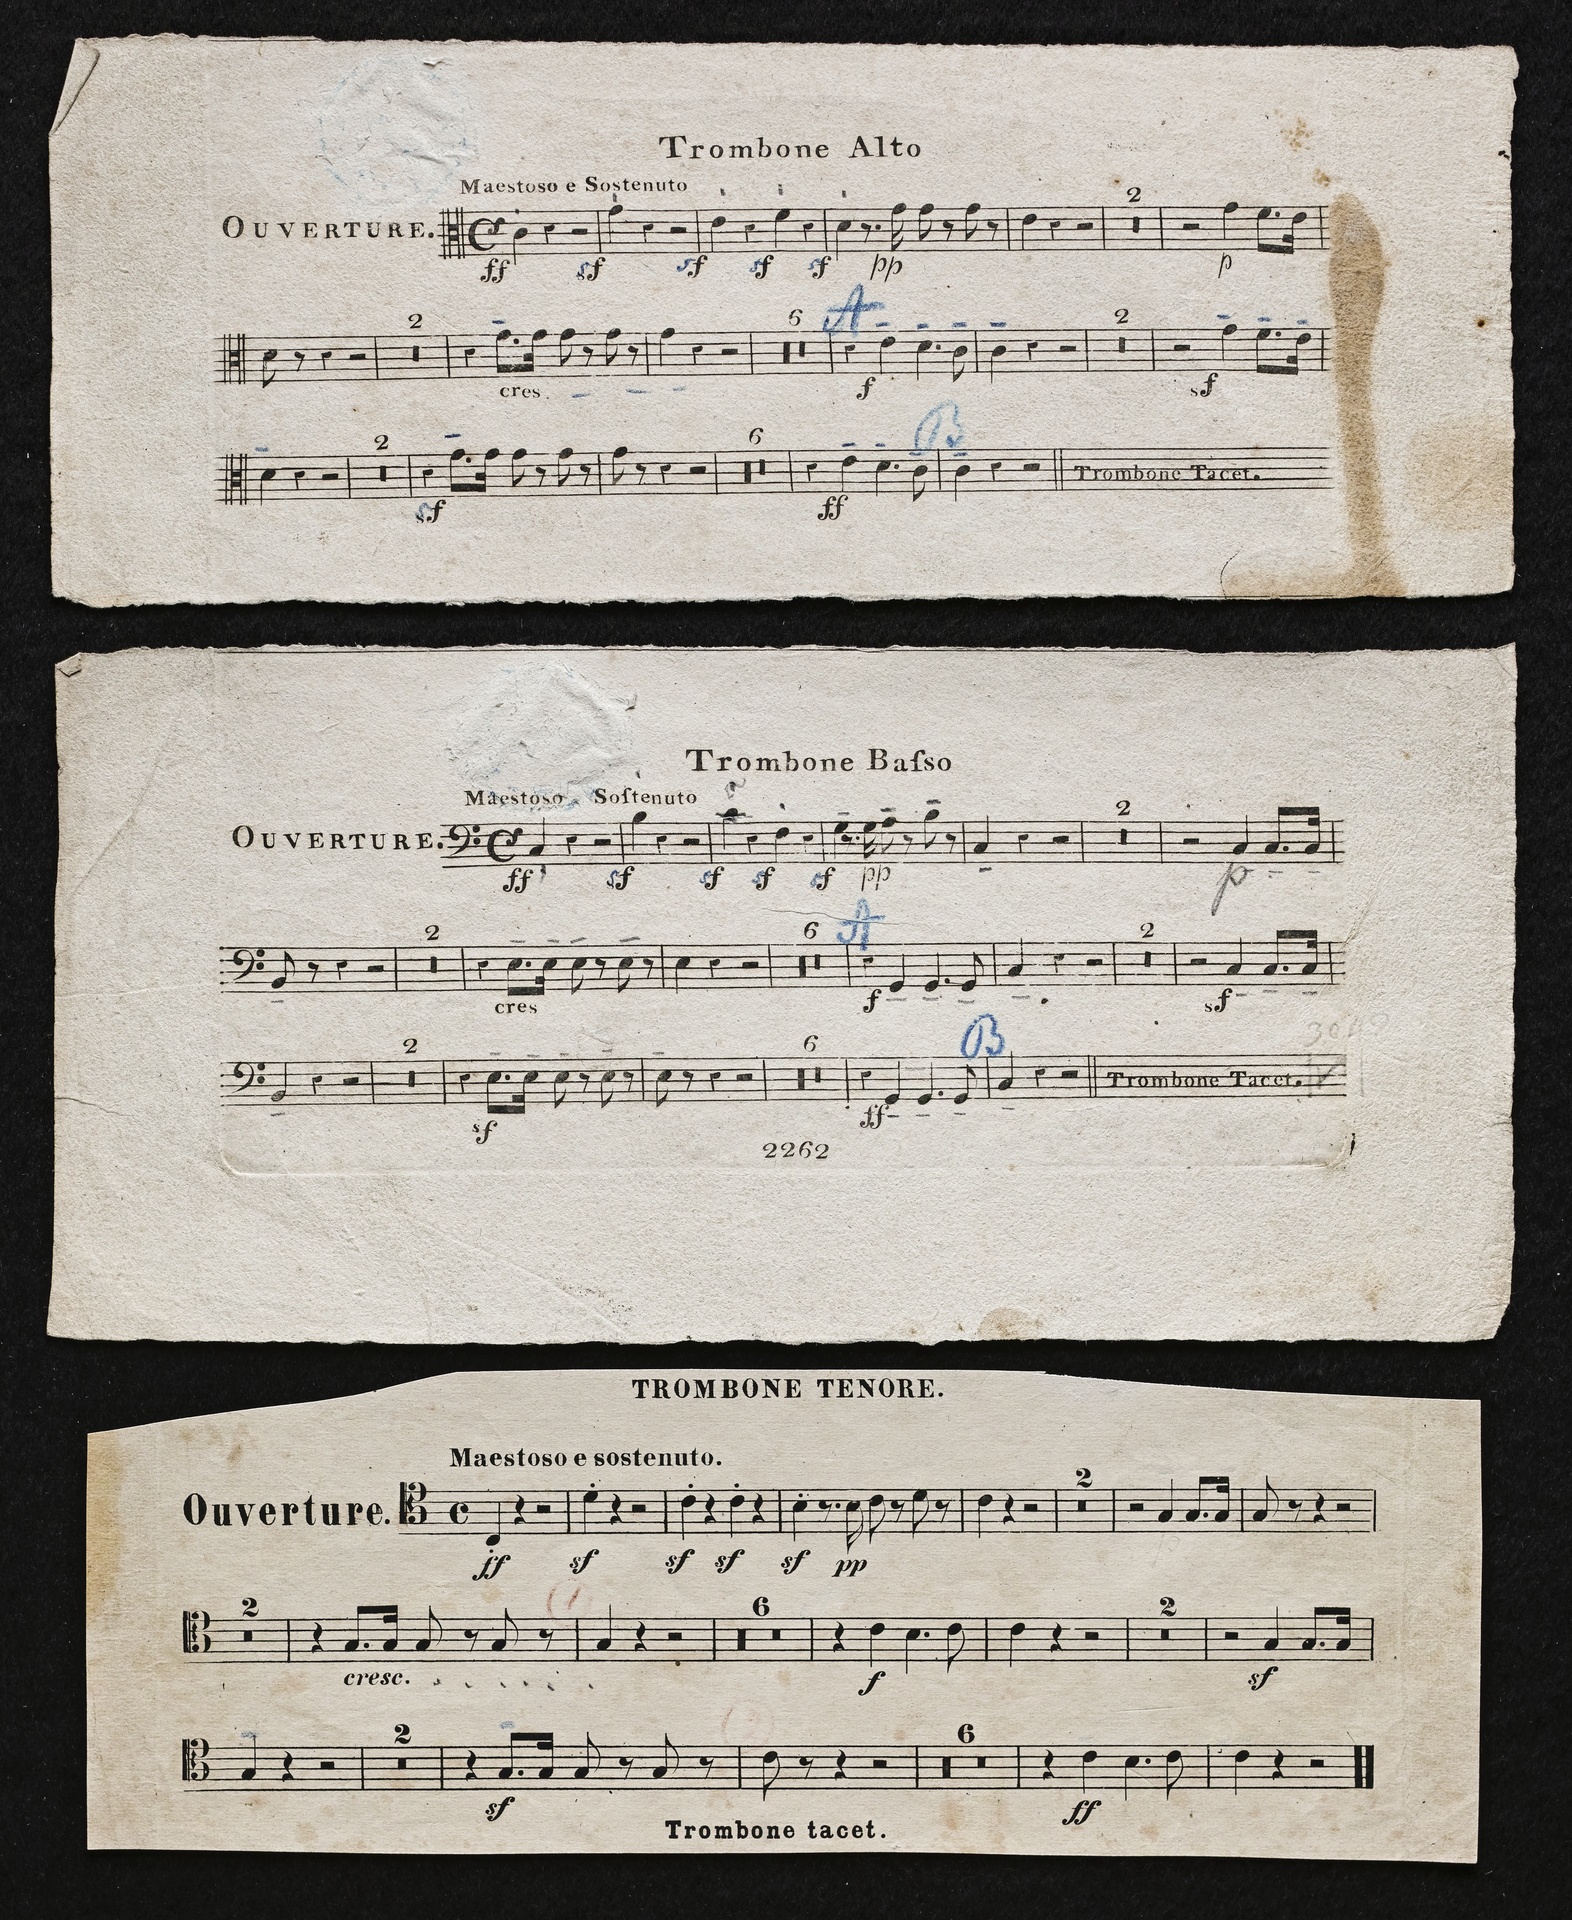 Trombone Alto
Maestoso e Sostenuto
2
OUVERTURE.
ff sf sf sf sf pp p
2 6 A 2
cres. f sf
2 6 B
Trombone Tacet.
sf ff
Trombone Baſso
Maestoso Soſtenuto
2
OUVERTURE.
ff sf sf sf sf pp p
2 6 A 2
cres f sf
2 6 B
Trombone Tacet.
sf ff
2262
TROMBONE TENORE.
Maestoso e sostenuto.
2
Ouverture.
ff sf sf sf sf pp
2 6 2
cresc. f sf
2 6
sf ff
Trombone tacet.